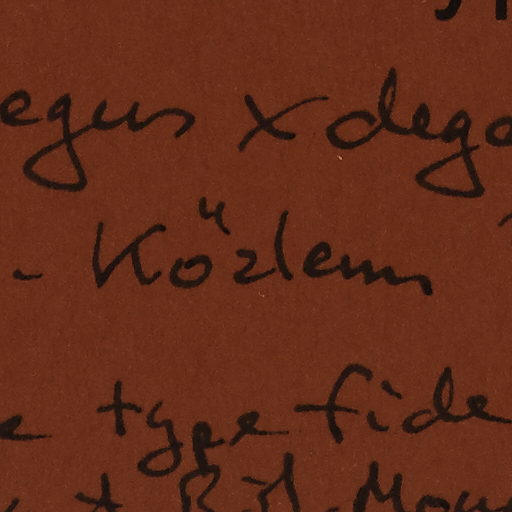 egus x dega
- Közlem
e type fide
+ Bil. Mou